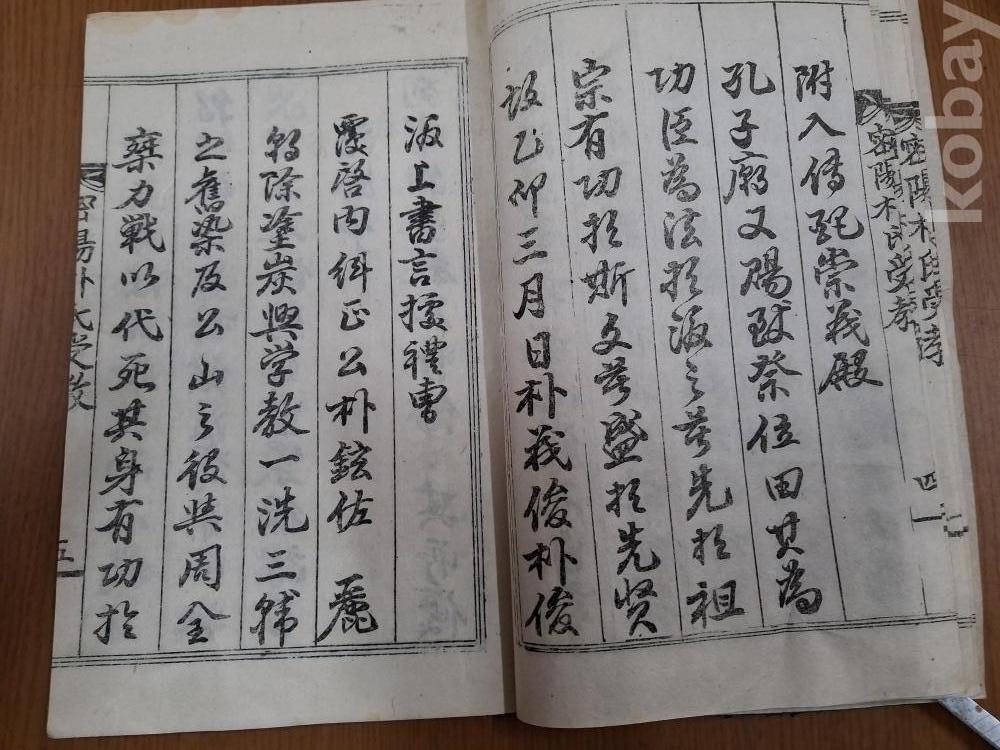 密陽朴氏受教
四
附入傳配崇義殿
孔子廟又賜致祭位田其為
功臣為法於後之莫先於祖
宗有功於斯文莫盛於先賢
乙卯三月日朴義俊朴俊
上書言據禮曹
覆啓內糾正公朴鉉佐 麗
朝除塗炭興学教一洗三韓
之舊染及公山之役與周全
力戰以代死其身有功於
密陽朴氏受教
五
kobay